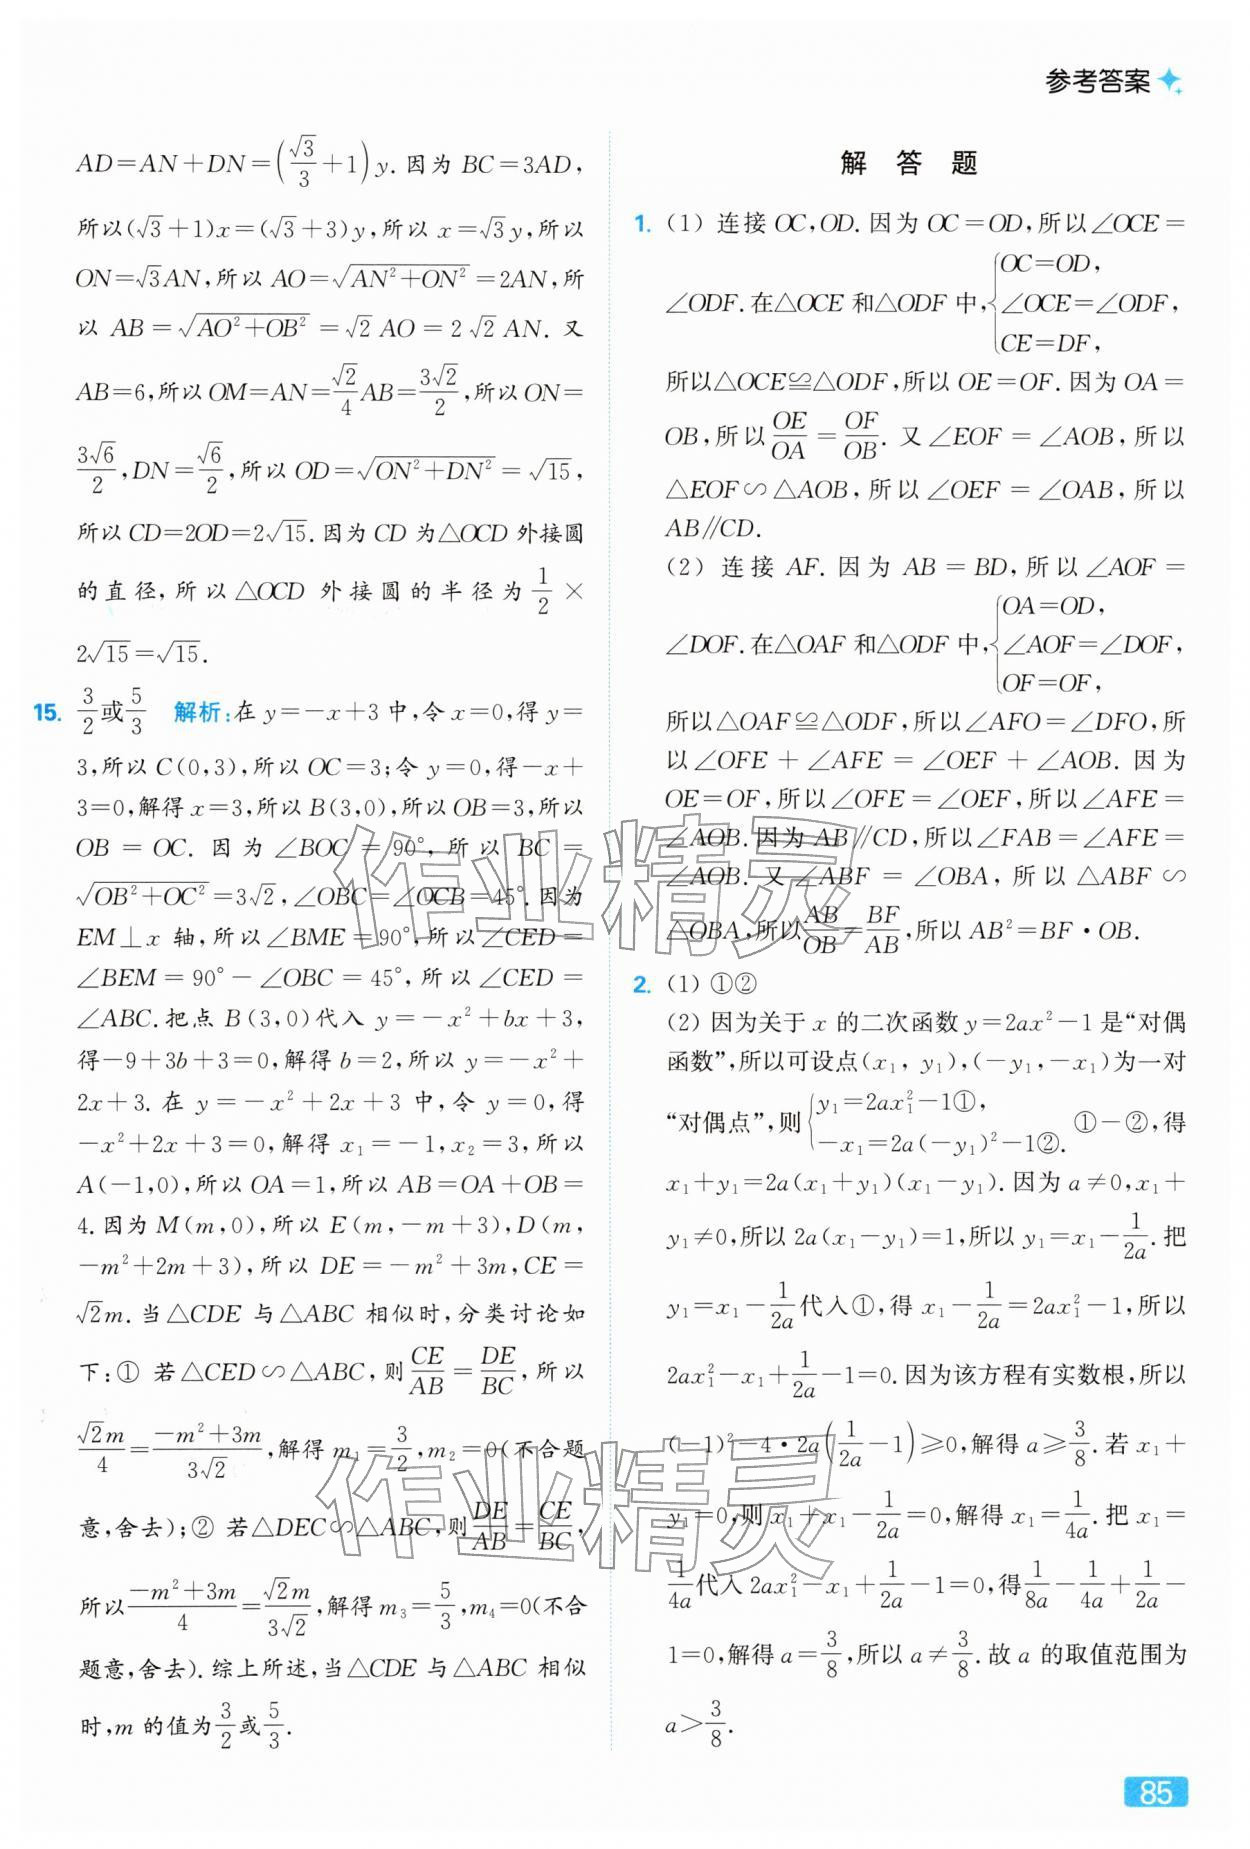 参考答案
AD=AN+DN=(√3/3+1)y.因为 BC=3AD,
所以(√3+1)x=(√3+3)y,所以 x=√3y,所以
ON=√3AN,所以 AO=√(AN²+ON²)=2AN,所
以 AB=√(AO²+OB²)=√2AO=2√2AN. 又
AB=6,所以OM=AN=√2/4AB=3√2/2,所以ON=
3√6/2,DN=√6/2,所以 OD=√(ON²+DN²)=√15,
所以CD=2OD=2√15.因为CD为△OCD外接圆
的直径,所以△OCD 外接圆的半径为1/2×
2√15=√15.
15. 3/2或5/3 解析:在 y=-x+3 中,令 x=0,得 y=
3,所以 C(0,3),所以 OC=3;令 y=0,得-x+
3=0,解得 x=3,所以 B(3,0),所以 OB=3,所以
OB=OC. 因为∠BOC=90°,所以 BC=
√(OB²+OC²)=3√2,∠OBC=∠OCB=45°.因为
EM⊥x 轴,所以∠BME=90°,所以∠CED=
∠BEM=90°-∠OBC=45°,所以∠CED=
∠ABC.把点 B(3,0)代入 y=-x²+bx+3,
得-9+3b+3=0,解得 b=2,所以 y=-x²+
2x+3.在 y=-x²+2x+3 中,令 y=0,得
-x²+2x+3=0,解得 x₁=-1,x₂=3,所以
A(-1,0),所以 OA=1,所以 AB=OA+OB=
4.因为 M(m,0),所以 E(m,-m+3),D(m,
-m²+2m+3),所以 DE=-m²+3m,CE=
√2m.当△CDE 与△ABC 相似时,分类讨论如
下:① 若△CED∽△ABC,则CE/AB=DE/BC,所以
√2m/4=(-m²+3m)/(3√2),解得 m₁=3/2,m₂=0(不合题
意,舍去);② 若△DEC∽△ABC,则DE/AB=CE/BC,
所以(-m²+3m)/4=√2m/(3√2),解得 m₃=5/3,m₄=0(不合
题意,舍去).综上所述,当△CDE 与△ABC 相似
时,m 的值为3/2或5/3.
解 答 题
1. (1) 连接 OC,OD.因为 OC=OD,所以∠OCE=
∠ODF.在△OCE 和△ODF 中,{OC=OD,
∠OCE=∠ODF,
CE=DF,
所以△OCE≌△ODF,所以 OE=OF.因为 OA=
OB,所以OE/OA=OF/OB. 又∠EOF=∠AOB,所以
△EOF∽△AOB,所以∠OEF=∠OAB,所以
AB∥CD.
(2) 连接 AF. 因为 AB=BD,所以∠AOF=
∠DOF.在△OAF 和△ODF 中,{OA=OD,
∠AOF=∠DOF,
OF=OF,
所以△OAF≌△ODF,所以∠AFO=∠DFO,所
以∠OFE+∠AFE=∠OEF+∠AOB. 因为
OE=OF,所以∠OFE=∠OEF,所以∠AFE=
∠AOB.因为 AB∥CD,所以∠FAB=∠AFE=
∠AOB. 又∠ABF=∠OBA,所以△ABF∽
△OBA,所以AB/OB=BF/AB,所以 AB²=BF·OB.
2. (1) ①②
(2) 因为关于 x 的二次函数 y=2ax²-1是“对偶
函数”,所以可设点(x₁, y₁),(-y₁,-x₁)为一对
“对偶点”,则{y₁=2ax₁²-1①,
-x₁=2a(-y₁)²-1②. ①-②,得
x₁+y₁=2a(x₁+y₁)(x₁-y₁).因为 a≠0,x₁+
y₁≠0,所以 2a(x₁-y₁)=1,所以 y₁=x₁-1/2a.把
y₁=x₁-1/2a代入①,得 x₁-1/2a=2ax₁²-1,所以
2ax₁²-x₁+1/2a-1=0.因为该方程有实数根,所以
(-1)²-4·2a(1/2a-1)≥0,解得 a≥3/8.若 x₁+
y₁=0,则 x₁+x₁-1/2a=0,解得 x₁=1/4a.把 x₁=
1/4a代入 2ax₁²-x₁+1/2a-1=0,得1/8a-1/4a+1/2a-
1=0,解得 a=3/8,所以 a≠3/8.故 a 的取值范围为
a>3/8.
作业精灵
作业精灵
85